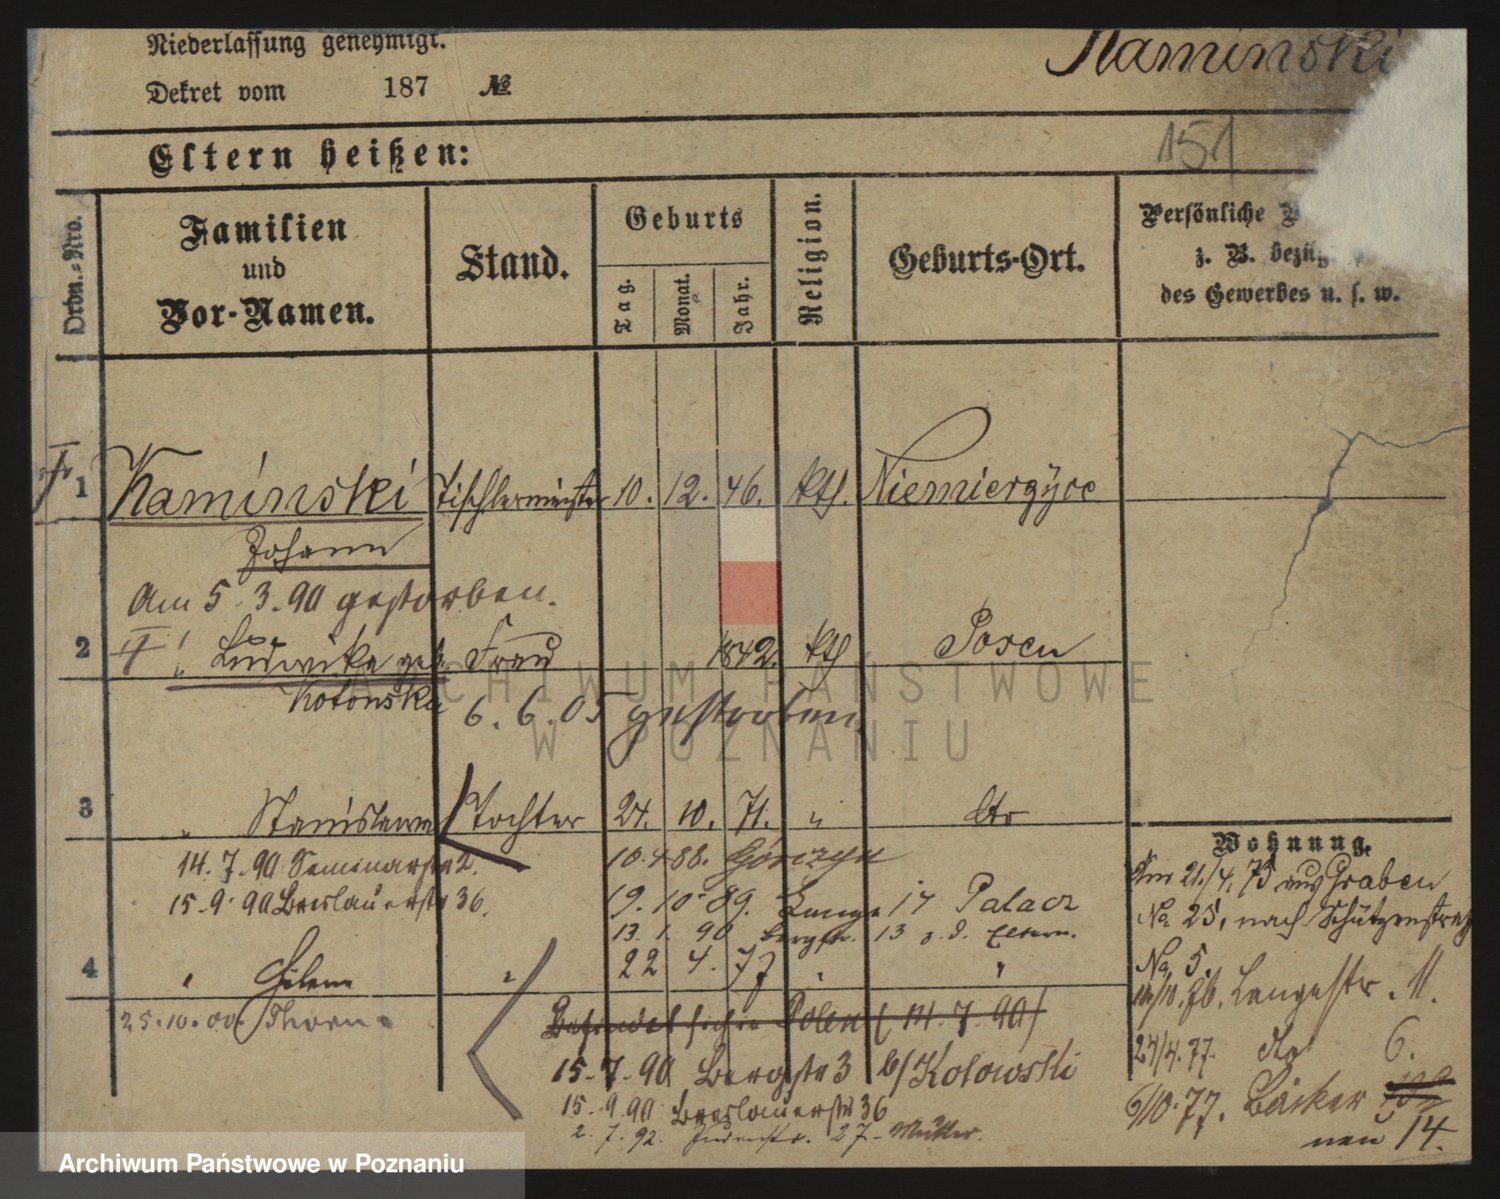 Niederlassung genehmigt.
Kaminski
Dekret vom 187 №
151
Eltern heißen:
Ordn.-Nro.
Familien und Vor-Namen.
Stand.
Geburts
Tag.
Monat.
Jahr.
Religion.
Geburts-Ort.
Persönliche
z. B.
des Gewerbes u. s. w.
1 Kaminski Tischlermeister 10. 12. 46. kth. Niemiergyce
Johann
Am 5. 3. 90 gestorben.
2 II " Ludwika geb. Frau 1842. kth Posen
Kotonska
6. 6. 05 gestorben
3 " Stanislawa Tochter 24. 10. 71. " dto
14. 7. 90 Seminarstr 2.
10.4.88. Gorczyn
15.9.90 Breslauerstr 36.
19. 10. 89. Lange 17 Palacz
13. 1. 90 Bergstr. 13 z. d. Eltern.
4 " Helene " 22 4. 77 " "
25.10.00. Thorn
Befindet sich in Polen (14. 7. 90)
15.7.90 Bergstr 3 b/ Kotowski
15.9.90 Breslauerstr 36
2. 7. 92. Judenstr. 27 - Mutter.
Wohnung.
Am 21/4. 75 aus Graben
No 25, nach Schützenstraß
No. 5.
10. 76. Langestr. 11.
24/4. 77. dto 6.
6/10. 77. Bäcker
neu 14.
ARCHIWUM PAŃSTWOWE
W POZNANIU
Archiwum Państwowe w Poznaniu